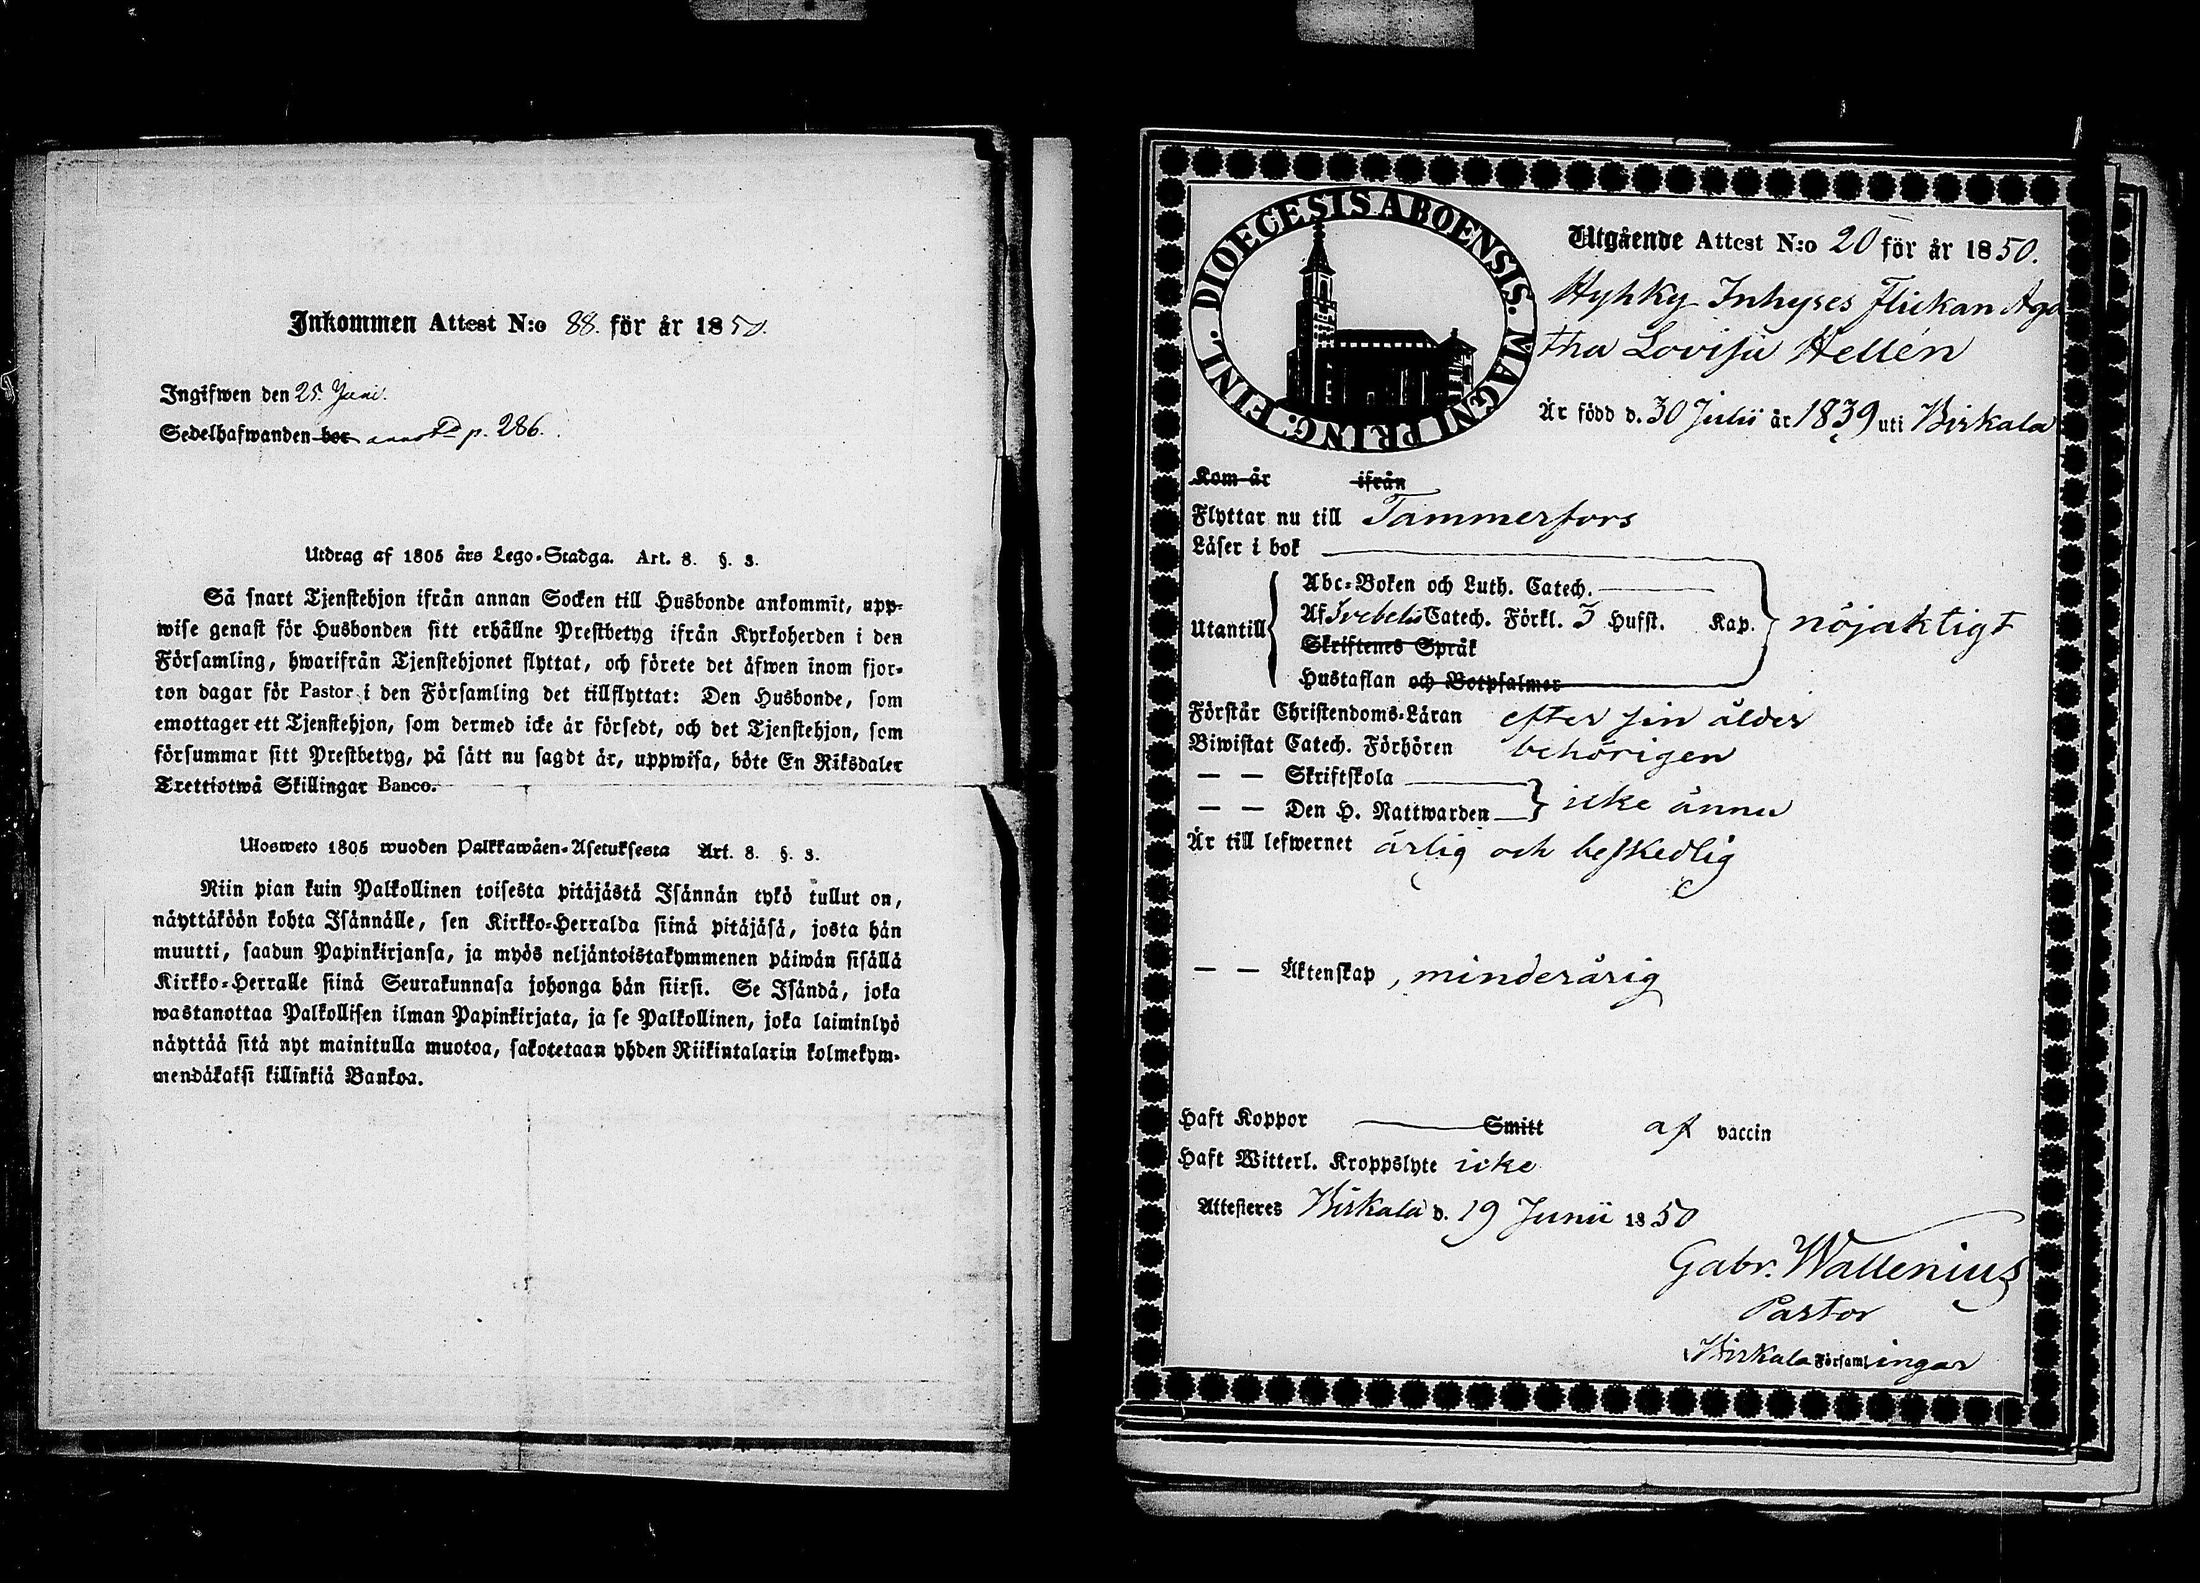 Inkommen Attest N:o 88. för år 1850.
Ingifwen den 25. Juni.
Sedelhafwanden bor p. 286.
Utdrag af 1805 års Lego-Stadga. Art. 8. §. 3.
Så snart Tjenstehjon ifrån annan Socken till Husbonde ankommit, upp-
wise genast för Husbonden sitt erhållne Prestbetyg ifrån Kyrkoherden i den
Församling, hwarifrån Tjenstehjonet flyttat, och förete det äfwen inom fjor-
ton dagar för Pastor i den Församling det tillflyttat: Den Husbonde, som
emottager ett Tjenstehjon, som dermed icke är försedt, och det Tjenstehjon, som
försummar sitt Prestbetyg, på sätt nu sagdt är, uppwisa, böte En Riksdaler
Trettiotwå Skillingar Banco.
Ulosweto 1805 wuoden Palkkawäen-Asetuksesta Art. 8. §. 3.
Niin pian kuin Palkollinen toisesta pitäjästä Isännän tykö tullut on,
näyttäköön kohta Isännälle, sen Kirkko-Herralda siinä pitäjäsä, josta hän
muutti, saadun Papinkirjansa, ja myös neljäntoistakymmenen päiwän sisällä
Kirkko-Herralle siinä Seurakunnasa johonga hän siirsi. Se Isändä, joka
wastanottaa Palkollisen ilman Papinkirjata, ja se Palkollinen, joka laiminlyö
näyttää sitä nyt mainitulla muotoa, sakotetaan yhden Riikintalarin kolmekym-
mendäkaksi killinkiä Bankoa.
DIOECESIS ABOENSIS. MAGNI PRINC. FINL.
Utgående Attest N:o 20 för år 1850.
Hyhky Inhyses Flickan Aga
tha Lovisa Hellén
Är född d. 30 Julii år 1839 uti Birkala
Kom år ifrån
Flyttar nu till Tammerfors
Läser i bok
Utantill
Abc-Boken och Luth. Catech.
Af Svebelii Catech. Förkl. 3 Hufst. Kap. nöjaktigt
Skriftenes Språk
Hustaflan och Botpsalmer
Förstår Christendoms-Läran efter sin ålder
Biwistat Catech. Förhören behörigen
— — Skriftskola
— — Den H. Nattwarden icke ännu
Är till lefwernet ärlig och beskedlig
— — Äktenskap, minderårig
Haft Koppor Smitt af vaccin
Haft Witterl. Kroppslyte icke
Attesteres Birkala d. 19 Junii 1850
Gabr. Wallenius
Pastor
Birkala Församlingar